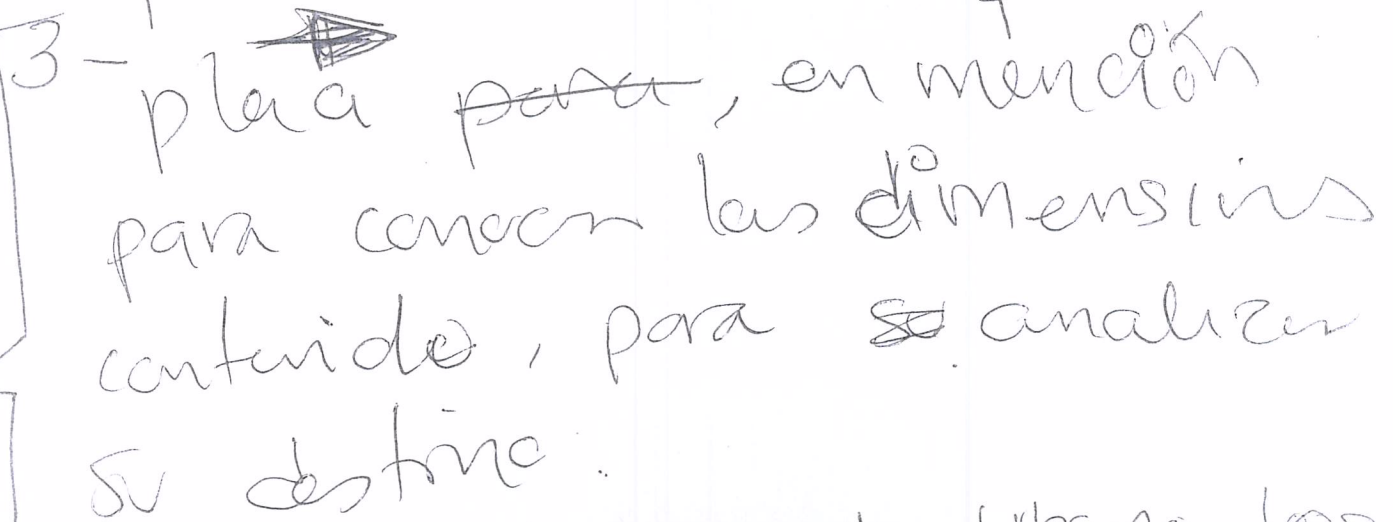 3- placa para, en mención
para conocer las dimensions
contenido, para analizar
su destino.
los